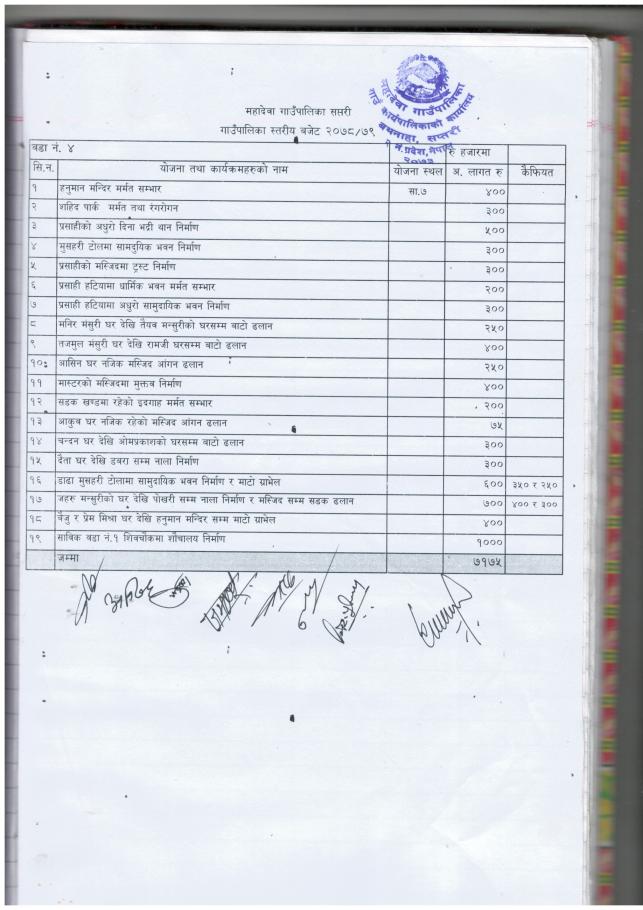 महादेवा गाउँपालिका
गाउँ कार्यपालिकाको कार्यालय
बमनाहा, सप्तरी
प्रदेश, नेपाल
२०७३
महादेवा गाउँपालिका सप्तरी
गाउँपालिका स्तरीय बजेट २०७८/७९
वडा नं. ४ रु हजारमा
सि.न. योजना तथा कार्यक्रमहरुको नाम योजना स्थल अ. लागत रु कैफियत
१ हनुमान मन्दिर मर्मत सम्भार सा.७ ४००
२ शहिद पार्क मर्मत तथा रंगरोगन ३००
३ प्रसाहीको अधुरो दिना भद्री थान निर्माण ५००
४ मुसहरी टोलमा सामदुयिक भवन निर्माण ३००
५ प्रसाहीको मस्जिदमा ट्रस्ट निर्माण ३००
६ प्रसाही हटियामा धार्मिक भवन मर्मत सम्भार २००
७ प्रसाही हटियामा अधुरो सामुदायिक भवन निर्माण ३००
८ मनिर मंसुरी घर देखि तैयव मन्सुरीको घरसम्म बाटो ढलान २५०
९ तजमुल मंसुरी घर देखि रामजी घरसम्म बाटो ढलान ४००
१० आसिन घर नजिक मस्जिद आंगन ढलान २५०
११ मास्टरको मस्जिदमा मुक्तव निर्माण ४००
१२ सडक खण्डमा रहेको इदगाह मर्मत सम्भार २००
१३ आकुब घर नजिक रहेको मस्जिद आंगन ढलान ७५
१४ चन्दन घर देखि ओमप्रकाशको घरसम्म बाटो ढलान ३००
१५ दैता घर देखि डबरा सम्म नाला निर्माण ३००
१६ डाढा मुसहरी टोलामा सामुदायिक भवन निर्माण र माटो ग्राभेल ६०० ३५० र २५०
१७ जहरु मन्सुरीको घर देखि पोखरी सम्म नाला निर्माण र मस्जिद सम्म सडक ढलान ७०० ४०० र ३००
१८ वैजु र प्रेम मिश्रा घर देखि हनुमान मन्दिर सम्म माटो ग्राभेल ४००
१९ साविक वडा नं.१ शिवचोकमा शौचालय निर्माण १०००
जम्मा ७१७५